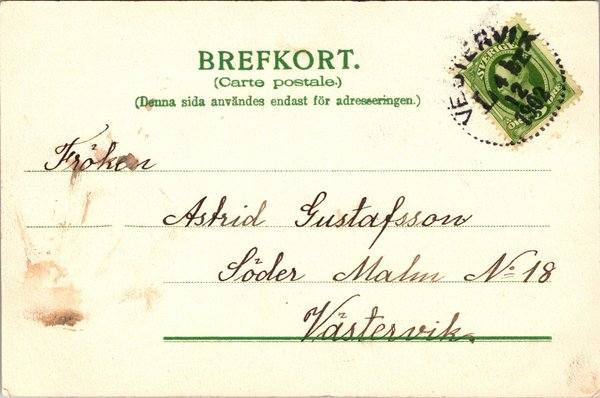 BREFKORT.
(Carte postale.)
(Denna sida användes endast för adresseringen.)
VESTERVIK
12
1902
SVERIGE
Fröken
Astrid Gustafsson
Söder Malm No 18
Västervik.